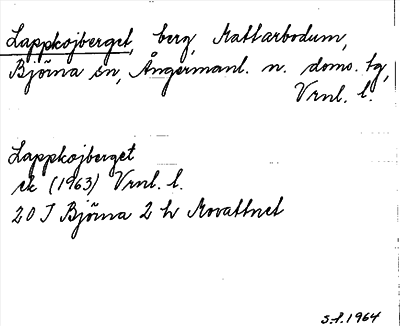 Lappkojberget, berg, Mattarbodum,
Björna sn, Ångermanl. n. doms. tg,
Vrnl. l.
Lappkojberget
ek (1963) Vrnl. l.
20 J Björna 2 h Movattnet
S.f. 1964